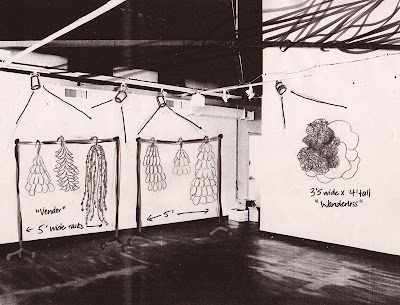 "Vendor"
← 5' wide racks →
← 5' →
3'5 wide x 4' tall
"Wanderlust"